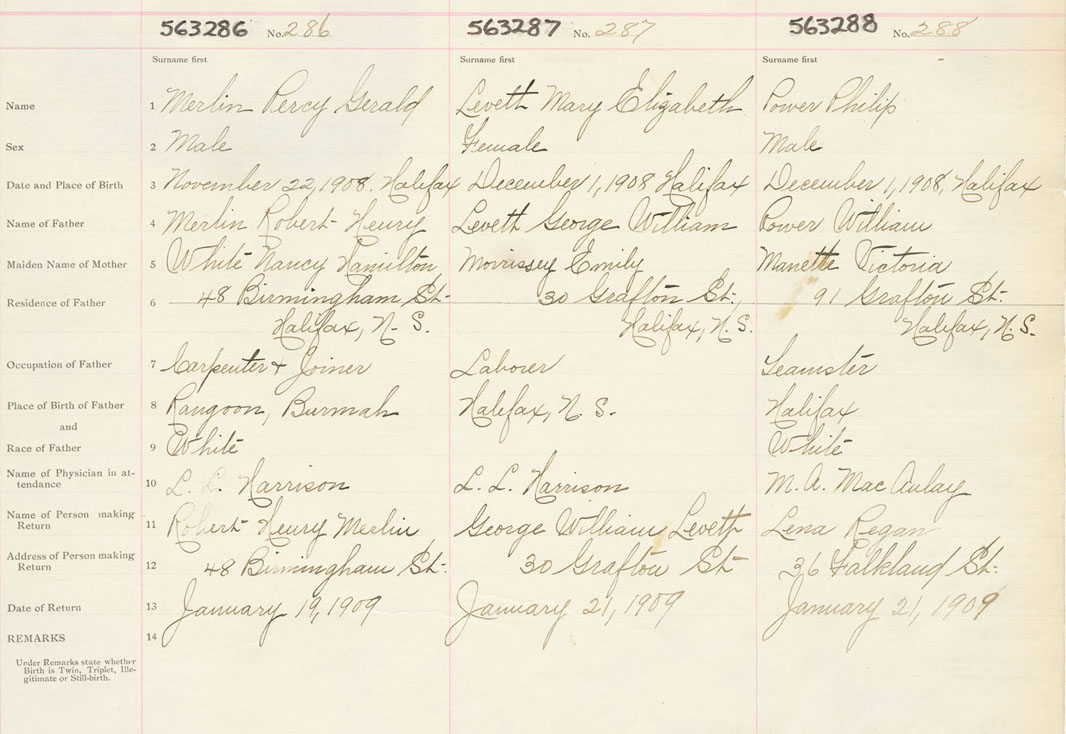 563286 No. 286 563287 No. 287 563288 No. 288
Surname first Surname first Surname first
Name 1 Merlin Percy Gerald Levett Mary Elizabeth Power Philip
Sex 2 Male Female Male
Date and Place of Birth 3 November 22, 1908. Halifax December 1, 1908 Halifax December 1, 1908, Halifax
Name of Father 4 Merlin Robert Henry Levett George William Power William
Maiden Name of Mother 5 White Nancy Hamilton Morrissey Emily Manette Victoria
Residence of Father 6 48 Birmingham St. 30 Grafton St., 91 Grafton St.
Halifax, N. S. Halifax, N. S. Halifax, N. S.
Occupation of Father 7 Carpenter & Joiner Laborer Teamster
Place of Birth of Father 8 Rangoon, Burmah Halifax, N. S. Halifax
and
Race of Father 9 White White
Name of Physician in at-
tendance 10 L. L. Harrison L. L. Harrison M. A. MacAulay
Name of Person making
Return 11 Robert Henry Merlin George William Levett Lena Regan
Address of Person making
Return 12 48 Birmingham St. 30 Grafton St 36 Falkland St.
Date of Return 13 January 19, 1909 January 21, 1909 January 21, 1909
REMARKS 14
Under Remarks state whether
Birth is Twin, Triplet, Ille-
gitimate or Still-birth.